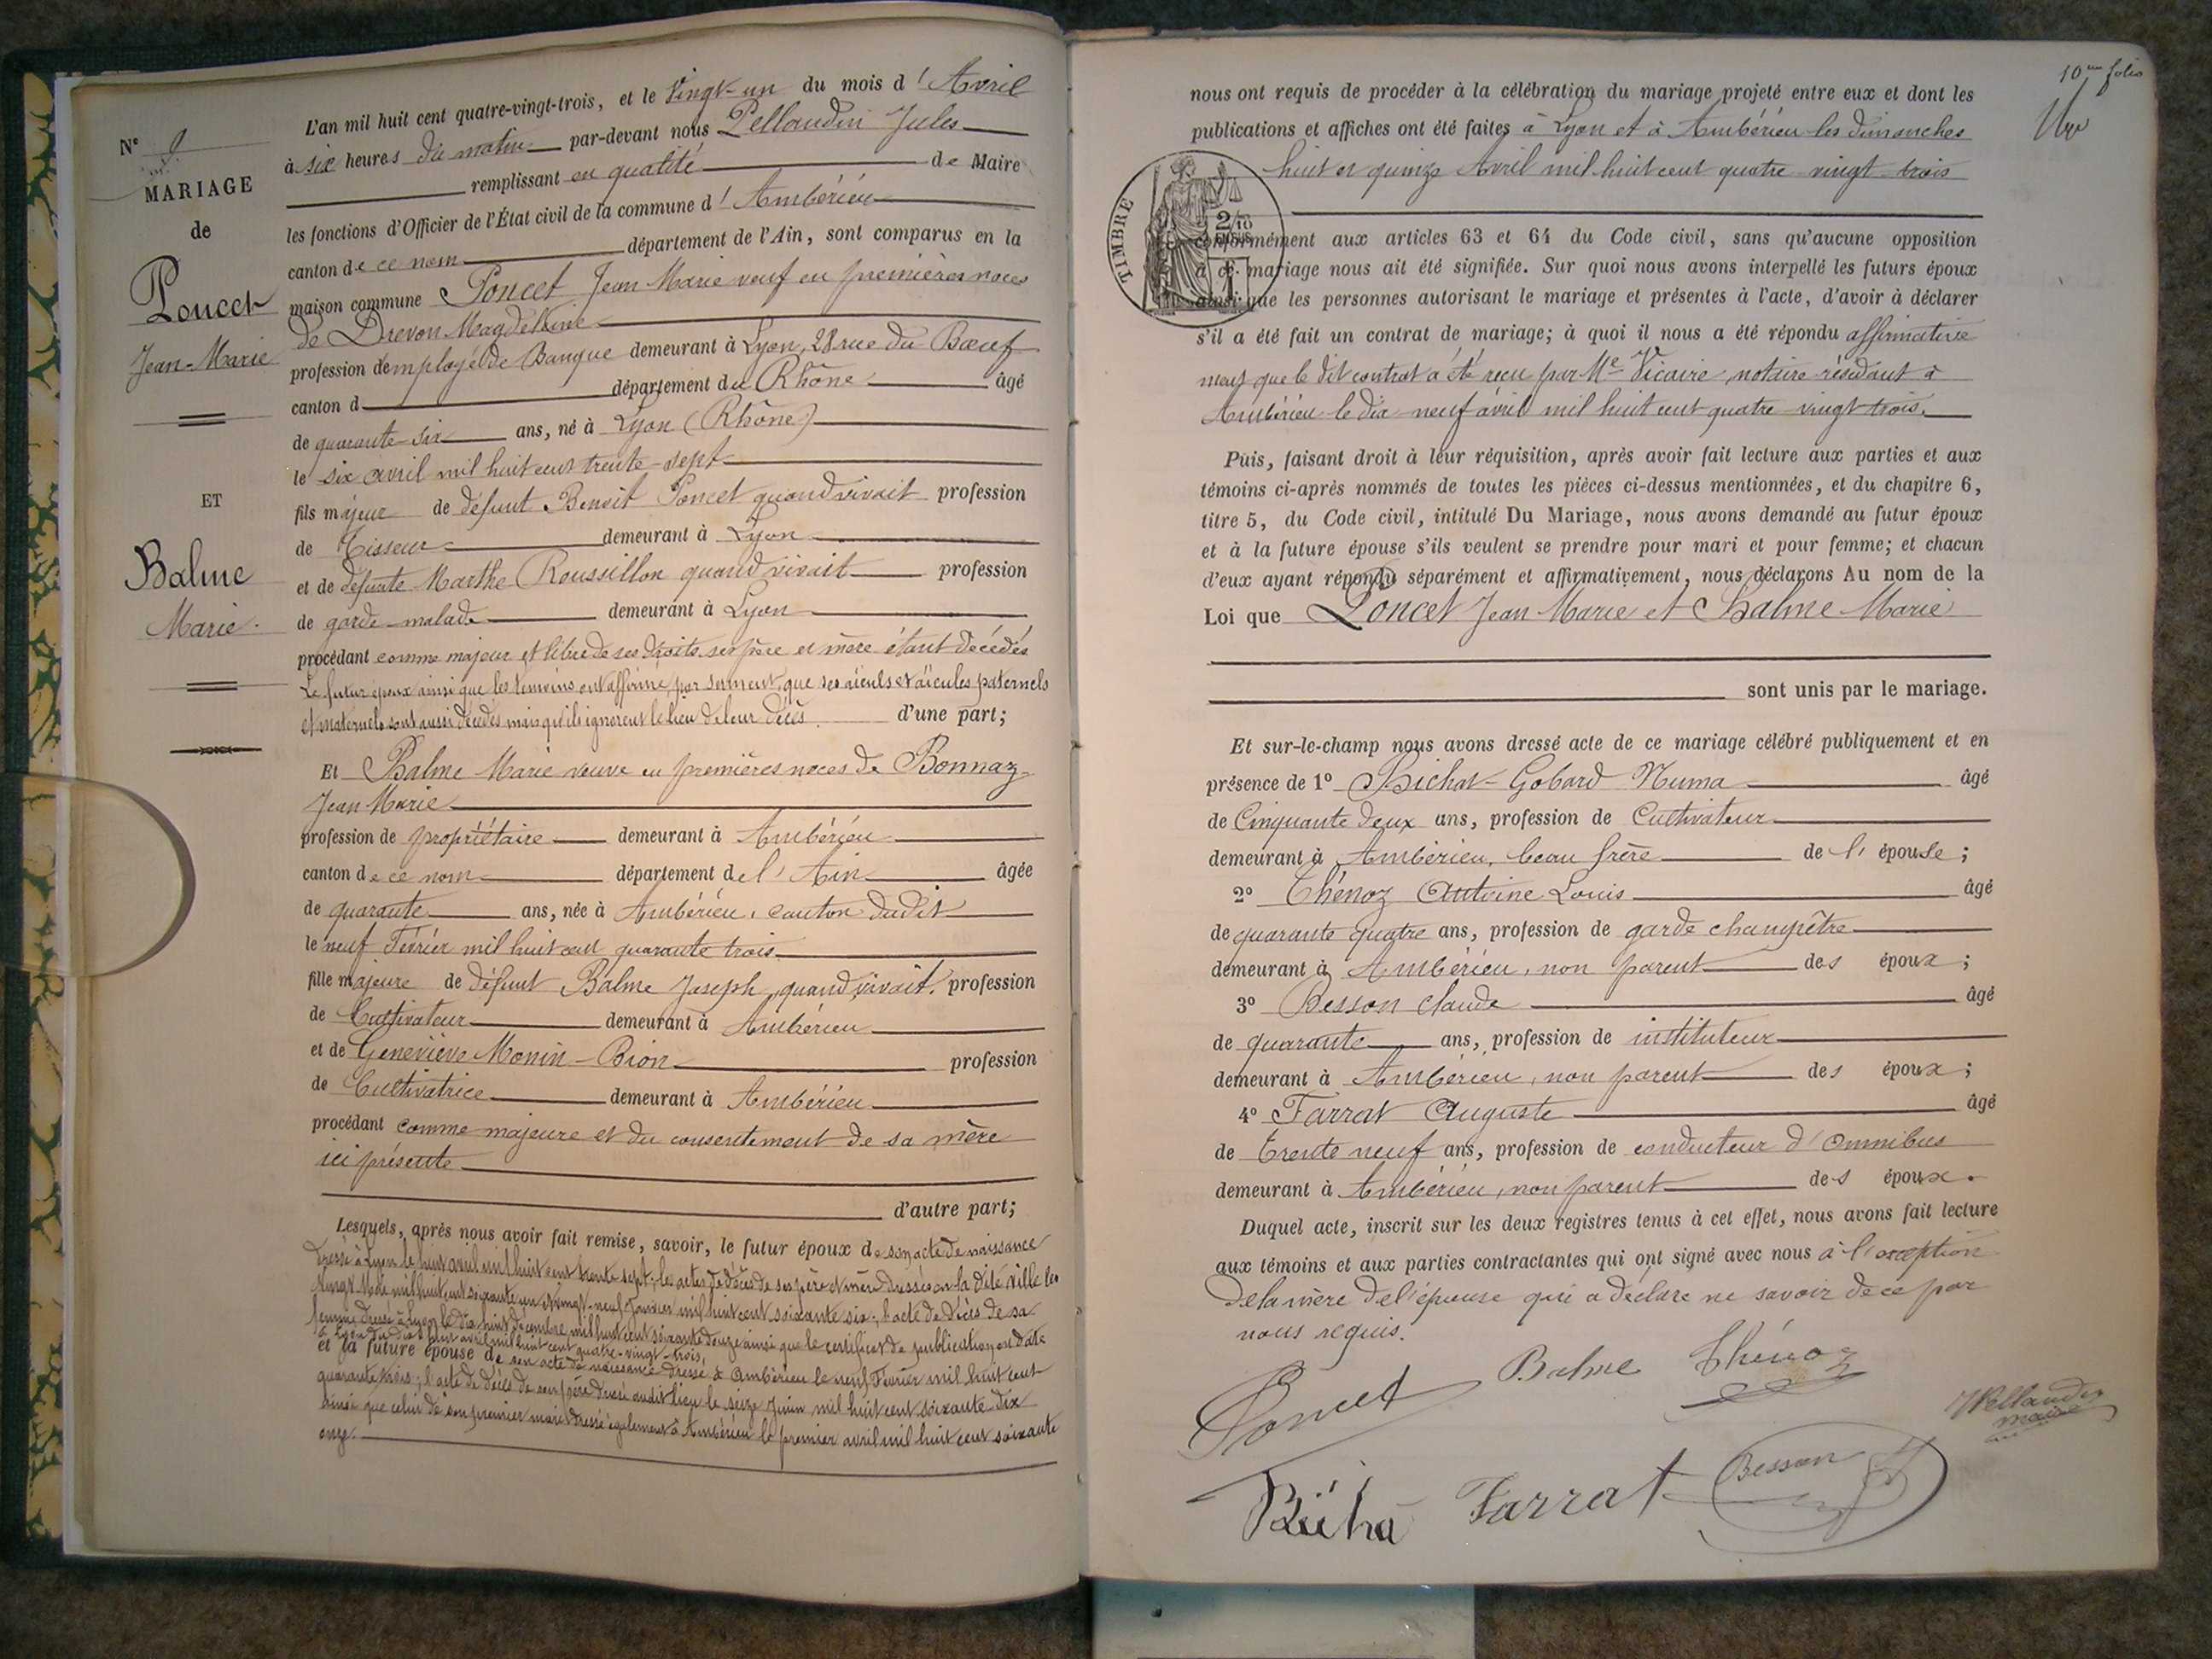 N° 9
MARIAGE
de
Poncet
Jean-Marie
ET
Balme
Marie.
L'an mil huit cent quatre-vingt-trois, et le vingt-un du mois d'Avril
à six heures du matin par-devant nous Pellaudin Jules
remplissant en qualité de Maire
les fonctions d'Officier de l'État civil de la commune d'Ambérieu
canton de ce nom département de l'Ain, sont comparus en la
maison commune Poncet Jean Marie veuf en premières noces
de Drevon Magdeleine
profession d'employé de Banque demeurant à Lyon, 28 rue du Bœuf
canton d département du Rhône âgé
de quarante-six ans, né à Lyon (Rhône)
le six avril mil huit cent trente-sept
fils majeur de défunt Benoit Poncet quand vivait profession
de Tisseur demeurant à Lyon
et de défunte Marthe Roussillon quand vivait profession
de garde-malade demeurant à Lyon
procédant comme majeur et libre de ses droits ses père et mère étant décédés
Le futur époux ainsi que les témoins ont affirmé par serment que ses aïeuls et aïeules paternels
et maternels sont aussi décédés mais qu'ils ignorent le lieu de leur décès d'une part;
Et Balme Marie veuve en premières noces de Bonnaz
Jean Marie
profession de propriétaire demeurant à Ambérieu
canton de ce nom département de l'Ain âgée
de quarante ans, née à Ambérieu, canton dudit
le neuf Février mil huit cent quarante trois
fille majeure de défunt Balme Joseph, quand vivait, profession
de Cultivateur demeurant à Ambérieu
et de Geneviève Monin-Bion profession
de Cultivatrice demeurant à Ambérieu
procédant comme majeure et du consentement de sa mère
ici présente
d'autre part;
Lesquels, après nous avoir fait remise, savoir, le futur époux de son acte de naissance
dressé à Lyon le huit avril mil huit cent trente sept; les actes de décès de ses père et mère dressés en la dite ville les
vingt Mai mil huit cent soixante un et vingt-neuf Janvier mil huit cent soixante six; l'acte de décès de sa
femme dressé à Lyon le dix huit décembre mil huit cent soixante douze ainsi que le certificat de publication en date
à Lyon du dix huit avril mil huit cent quatre-vingt-trois,
et la future épouse de son acte de naissance dressé à Ambérieu le neuf Février mil huit cent
quarante trois; l'acte de décès de son père dressé audit lieu le seize Juin mil huit cent soixante dix
ainsi que celui de son premier mari dressé également à Ambérieu le premier avril mil huit cent soixante
onze.
10me folio
nous ont requis de procéder à la célébration du mariage projeté entre eux et dont les
publications et affiches ont été faites à Lyon et à Ambérieu les dimanches
huit et quinze Avril mil huit cent quatre vingt trois
TIMBRE
2/10
conformément aux articles 63 et 64 du Code civil, sans qu'aucune opposition
à ce mariage nous ait été signifiée. Sur quoi nous avons interpellé les futurs époux
ainsi que les personnes autorisant le mariage et présentes à l'acte, d'avoir à déclarer
s'il a été fait un contrat de mariage; à quoi il nous a été répondu affirmative
ment que le dit contrat a été reçu par Me Vicaire, notaire résidant à
Ambérieu le dix-neuf avril mil huit cent quatre-vingt-trois.
Puis, faisant droit à leur réquisition, après avoir fait lecture aux parties et aux
témoins ci-après nommés de toutes les pièces ci-dessus mentionnées, et du chapitre 6,
titre 5, du Code civil, intitulé Du Mariage, nous avons demandé au futur époux
et à la future épouse s'ils veulent se prendre pour mari et pour femme; et chacun
d'eux ayant répondu séparément et affirmativement, nous déclarons Au nom de la
Loi que Poncet Jean Marie et Balme Marie
sont unis par le mariage.
Et sur-le-champ nous avons dressé acte de ce mariage célébré publiquement et en
présence de 1° Bichat-Gobard Numa âgé
de Cinquante deux ans, profession de Cultivateur
demeurant à Ambérieu, beau frère de l'épouse;
2° Thénoz Antoine Louis âgé
de quarante quatre ans, profession de garde champêtre
demeurant à Ambérieu, non parent des époux;
3° Besson Claude âgé
de quarante ans, profession de instituteur
demeurant à Ambérieu, non parent des époux;
4° Farrat Auguste âgé
de trente neuf ans, profession de conducteur d'omnibus
demeurant à Ambérieu, non parent des époux.
Duquel acte, inscrit sur les deux registres tenus à cet effet, nous avons fait lecture
aux témoins et aux parties contractantes qui ont signé avec nous à l'exception
de la mère de l'épouse qui a déclaré ne savoir de ce par
nous requis.
Poncet Balme Thénoz
JPellaudin
maire
Farrat Besson